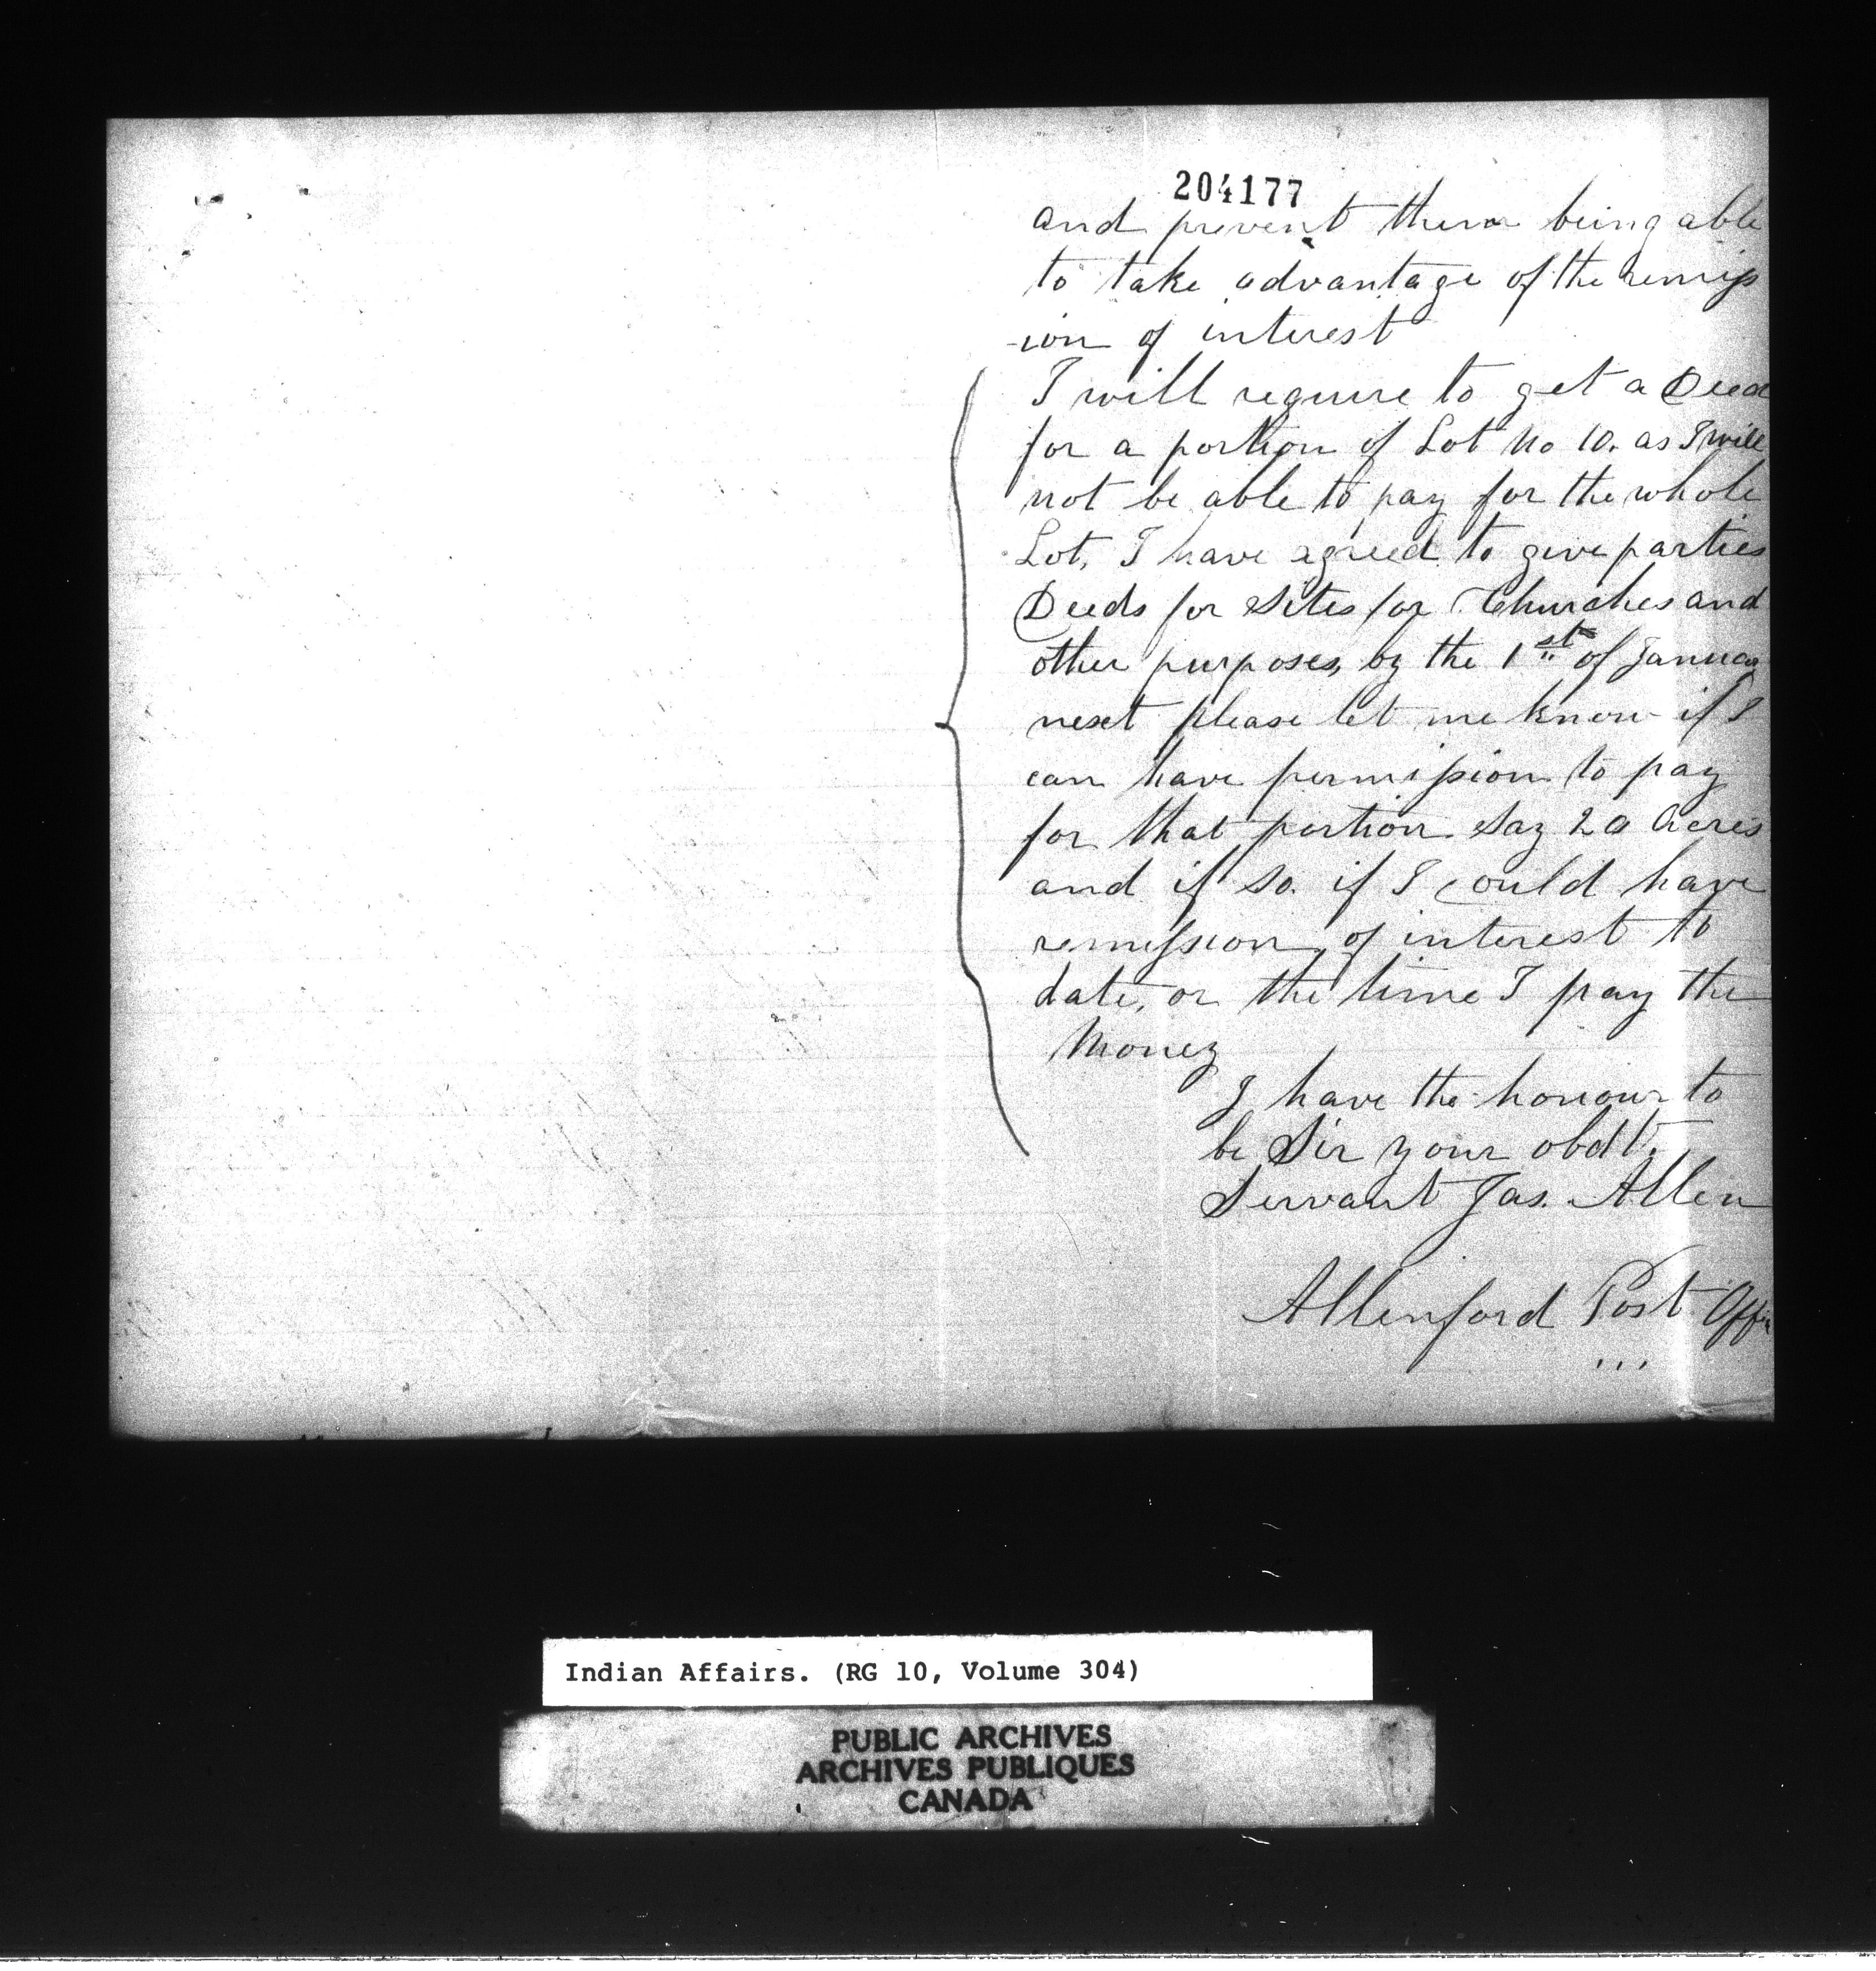 204177
and prevent them being able
to take advantage of the remiss
-ion of interest
I will require to get a Deed
for a portion of Lot No 10. as I will
not be able to pay for the whole
Lot, I have agreed to give parties
Deeds for Sites for Churches and
other purposes, by the 1st of January
next please let me know if I
can have permission to pay
for that portion say 20 Acres
and if so. if I could have
remission of interest to
date, or the time I pay the
Money
I have the honour to
be Sir your obdt.
Servant Jas. Allen
Allenford Post Office
Indian Affairs. (RG 10, Volume 304)
PUBLIC ARCHIVES
ARCHIVES PUBLIQUES
CANADA